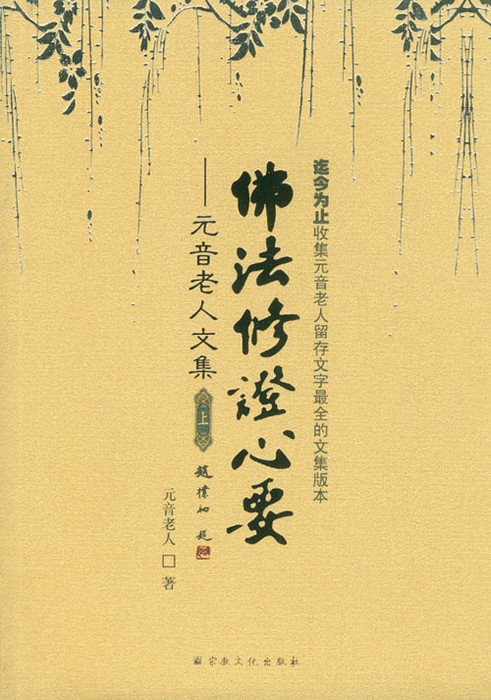 迄今为止收集元音老人留存文字最全的文集版本
佛法修證心要
——元音老人文集
上
趙樸初題
元音老人□著
宗教文化出版社